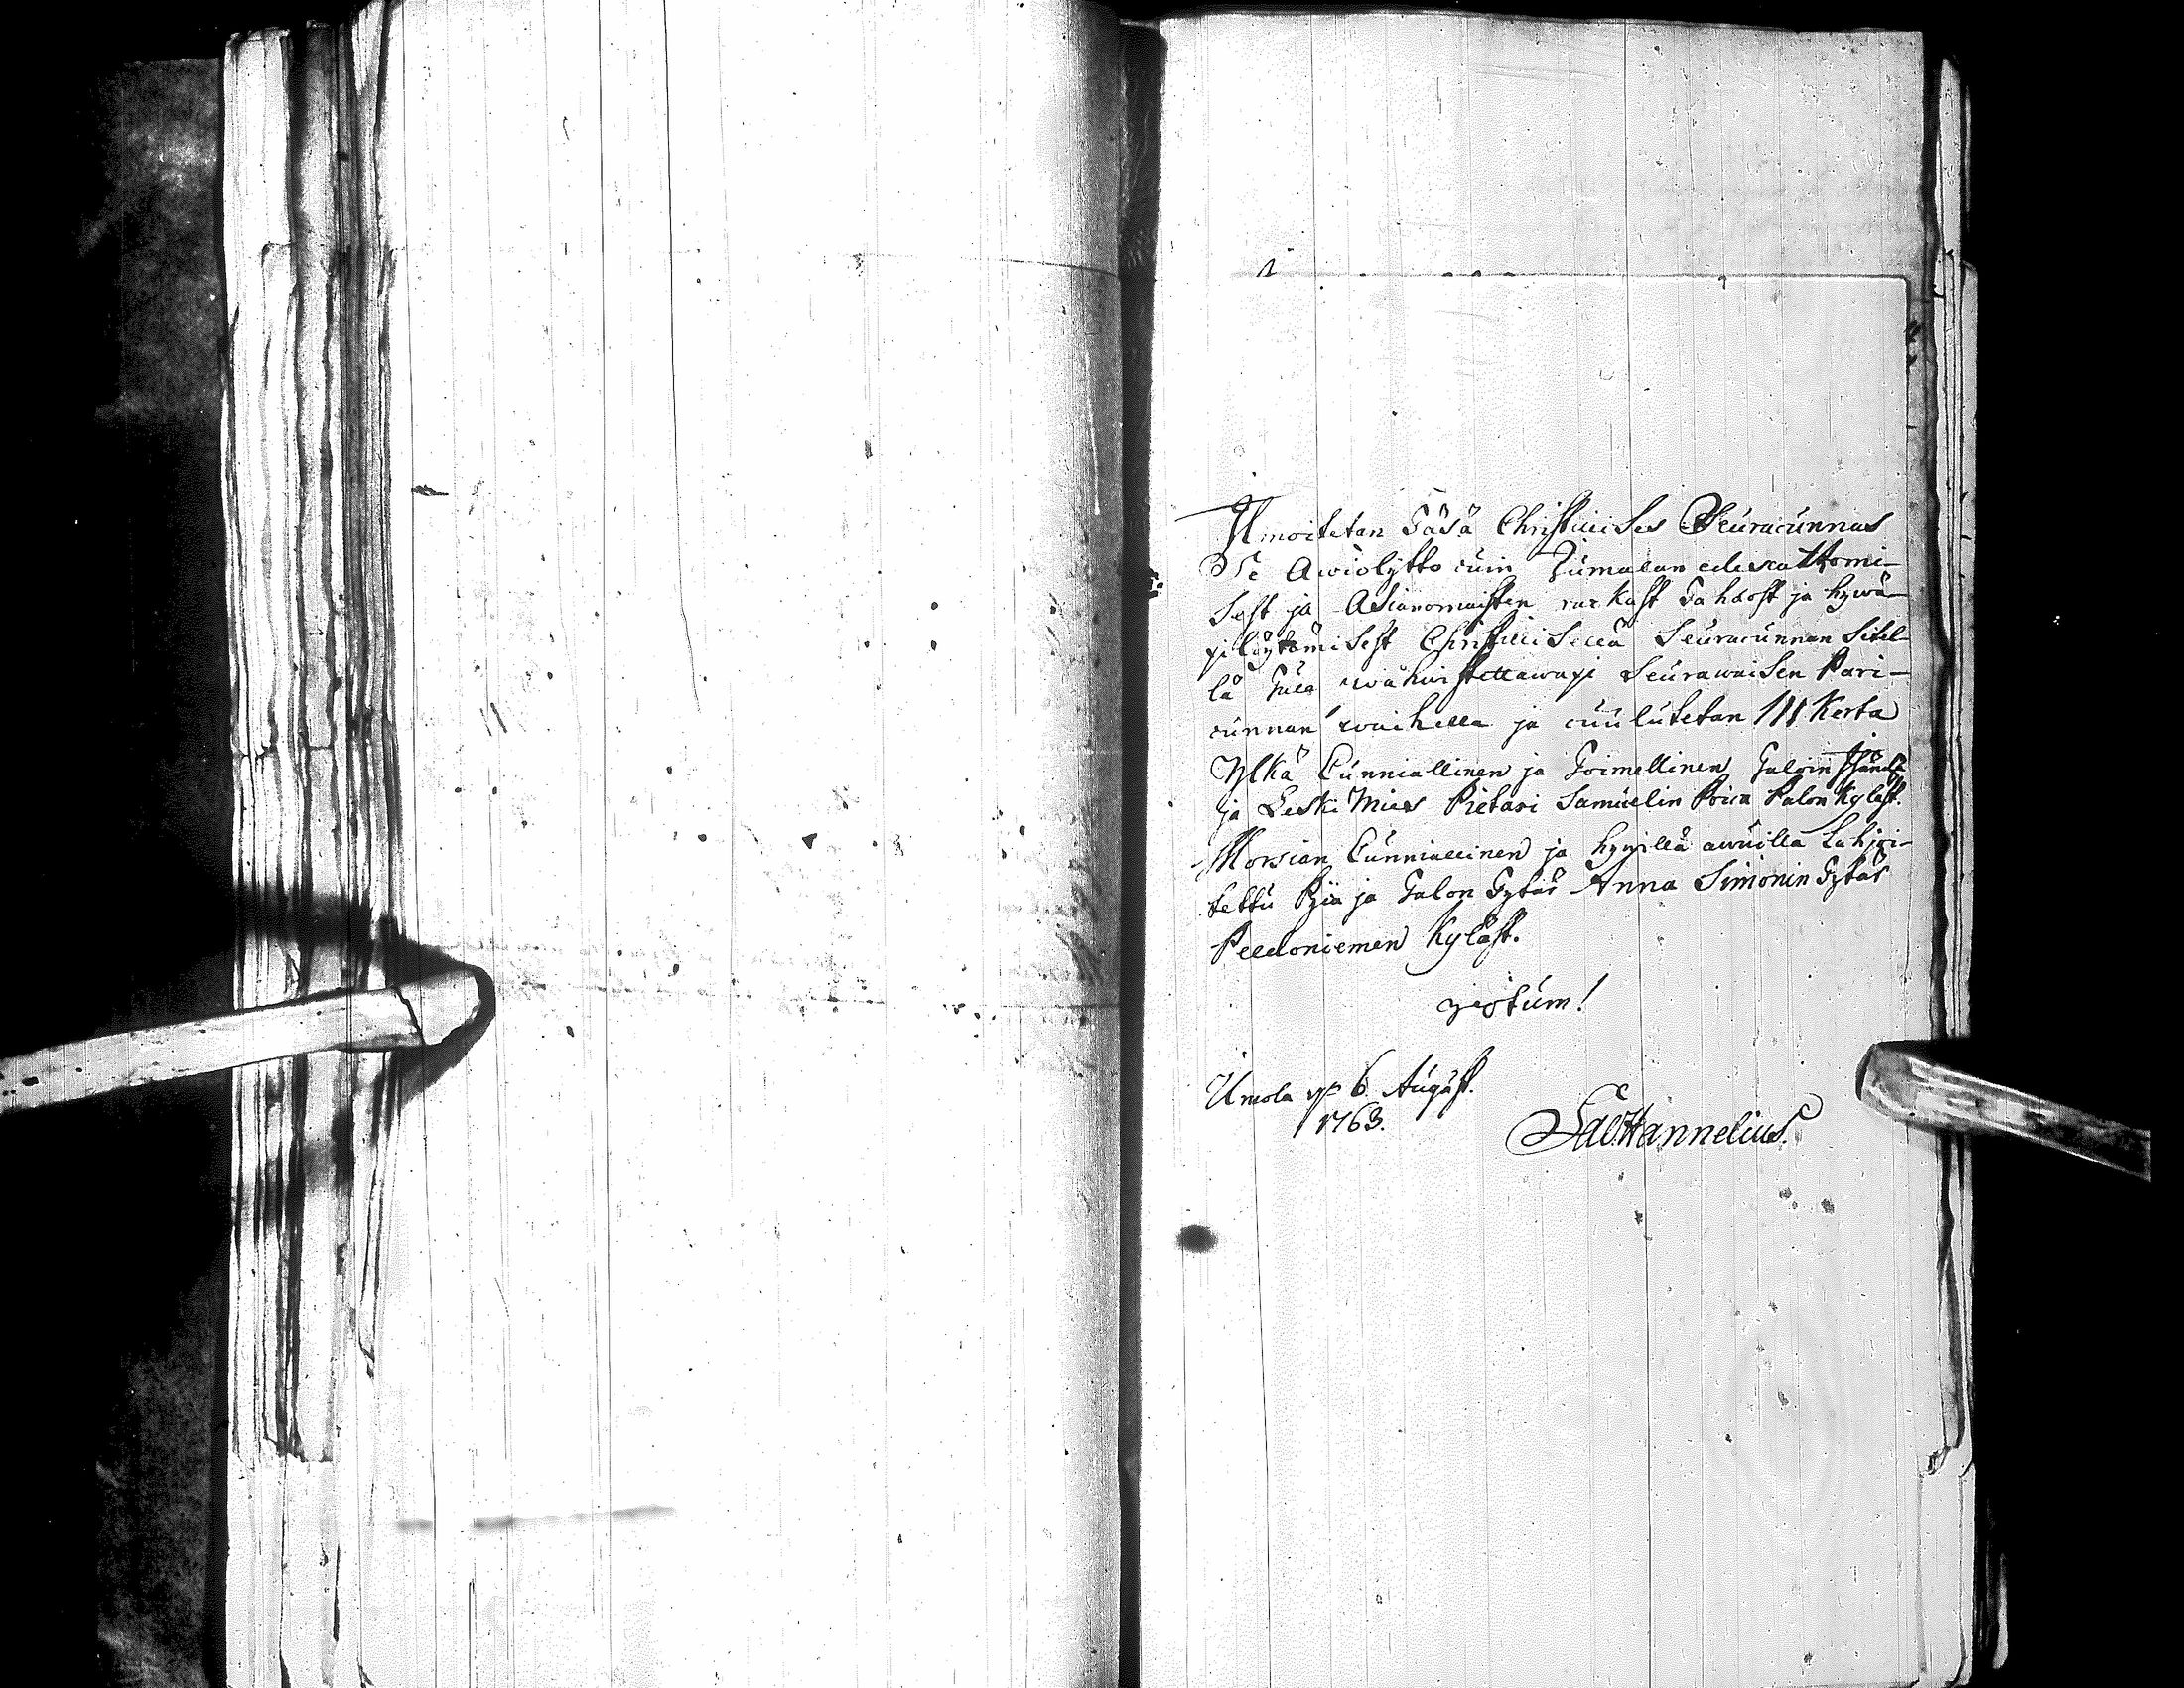 Ilmoitetan Täsä Christillises Seuracunnas
Se Awiolijtto cuin Jumalan edescattomi-
sest ja Asianomaisten racKast Tahdost ja hywä-
xi löytämisest Christillisellä Seuracunnan Sitel-
lä Tule wahwistettawaxi Seurawaisen Pari-
cunnan waihella ja cuulutetan III Kerta
Ylkä Cunniallinen ja Toimellinen Taloin Isändä
ja Leski Mies Pietari Samuelin Poica Palon Kyläst.
Morsian Cunniallinen ja hywillä awuilla Lahjoi-
tettu Pijca ja Talon Tytär Anna Simonin Tytär
Peldoniemen Kyläst.
xistum!
Urnola 6 August.
1763.
Hannelius.